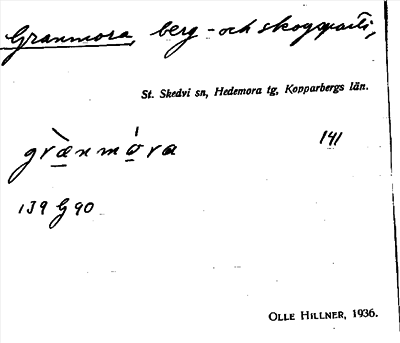 Granmora, berg- och skogsparti,
St. Skedvi sn, Hedemora tg, Kopparbergs län.
græ̀nmóra
141
139 G 90
OLLE HILLNER, 1936.